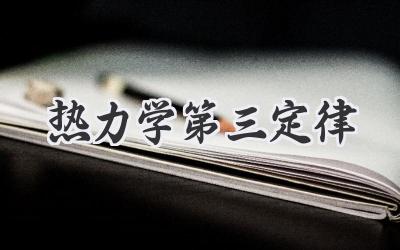 热力学第三定律